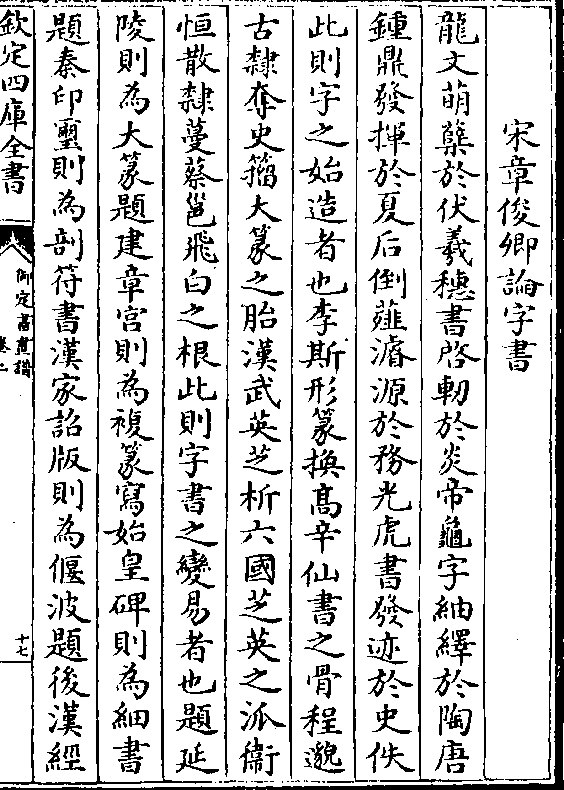 宋章俊卿論字書
龍文萌蘖於伏羲穗書啓軔於炎帝龜字紬繹於陶唐
鍾鼎發揮於夏后倒薤濬源於務光虎書發迹於史佚
此則字之始造者也李斯形篆換髙辛仙書之骨程邈
古隸奪史籀大篆之胎漢武英芝析六國芝英之派衛
恒散隸蔓蔡邕飛白之根此則字書之變易者也題延
陵則為大篆題建章宮則為複篆寫始皇碑則為細書
題秦印璽則為剖符書漢家詔版則為偃波題後漢經
欽定四庫全書
御定書畫譜
卷二
十七